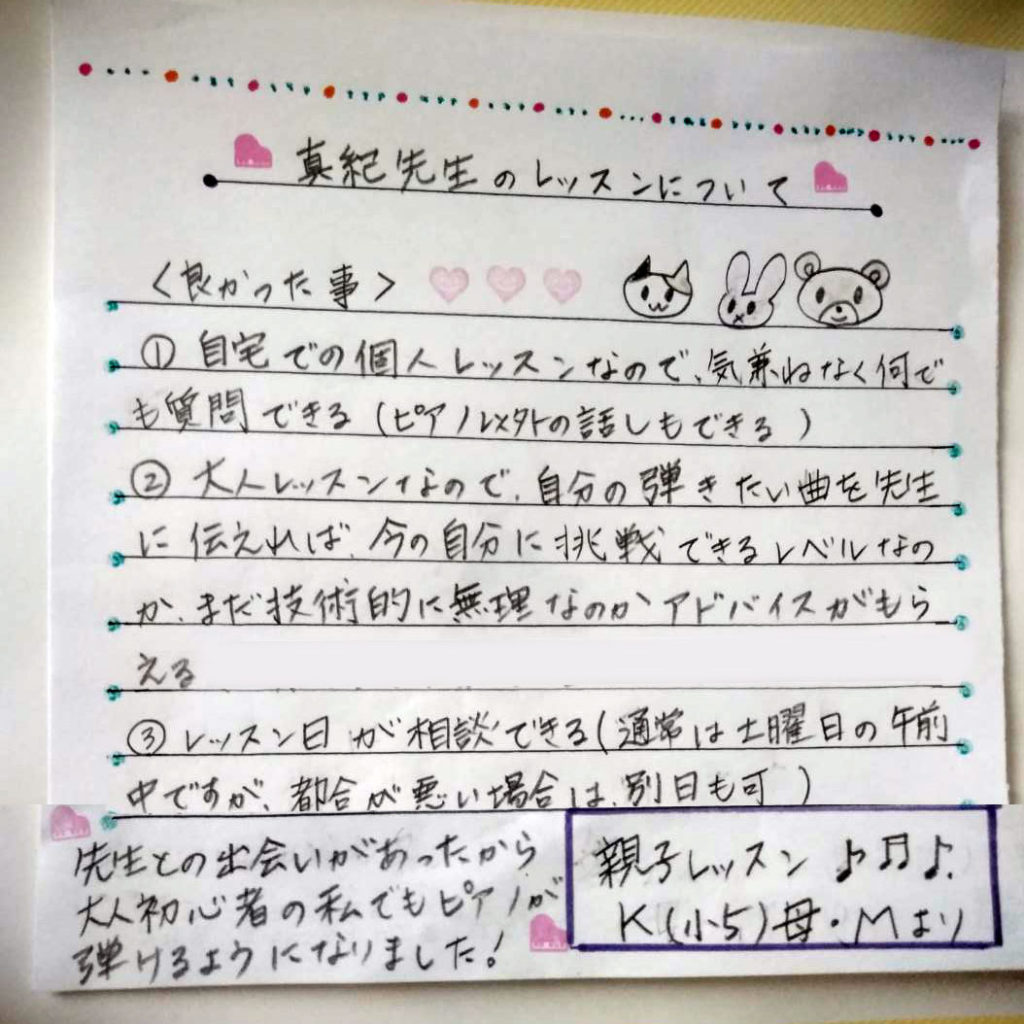 真紀先生のレッスンについて
<良かった事>
① 自宅での個人レッスンなので、気兼ねなく何で
も質問できる(ピアノ以外の話しもできる)
② 大人レッスンなので、自分の弾きたい曲を先生
に伝えれば、今の自分に挑戦できるレベルなの
か、まだ技術的に無理なのかアドバイスがもら
える
③ レッスン日が相談できる(通常は土曜日の午前
中ですが、都合が悪い場合は、別日も可)
先生との出会いがあったから
大人初心者の私でもピアノが
弾けるようになりました!
親子レッスン ♪♬♪.
K(小5)母・Mより